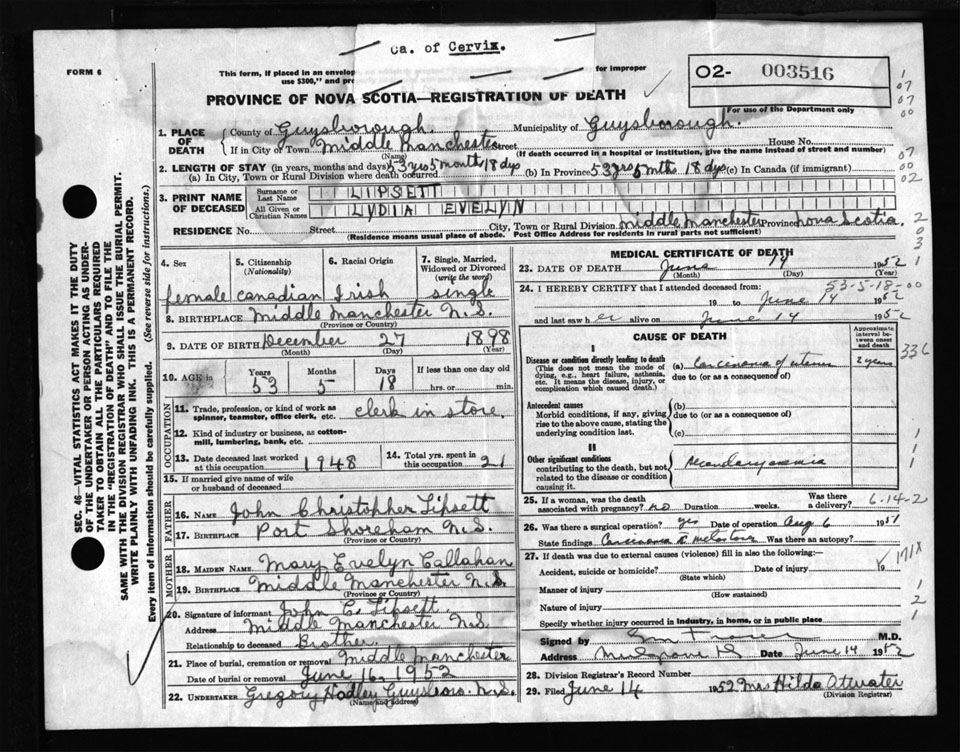 Ca. of Cervix.
FORM 6
This form, if placed in an envelop for improper
use $300," and pr
02- 003516
For use of the Department only
PROVINCE OF NOVA SCOTIA—REGISTRATION OF DEATH
1. PLACE OF DEATH
County of Guysborough. Municipality of Guysborough.
If in City or Town Middle Manchester Street House No.
(Name) (If death occurred in a hospital or institution, give the name instead of street and number)
2. LENGTH OF STAY (in years, months and days)
(a) In City, Town or Rural Division where death occurred 53 yrs 5 month 18 dys (b) In Province 53 yrs 5 mths 18 dys (c) In Canada (if immigrant)
3. PRINT NAME OF DECEASED
Surname or Last Name LIPSETT
All Given or Christian Names LYDIA EVELYN
RESIDENCE No. Street City, Town or Rural Division Middle Manchester Province Nova Scotia.
(Residence means usual place of abode. Post Office Address for residents in rural parts not sufficient)
4. Sex female
5. Citizenship (Nationality) Canadian
6. Racial Origin Irish
7. Single, Married, Widowed or Divorced (write the word) single
8. BIRTHPLACE Middle Manchester N.S.
(Province or Country)
9. DATE OF BIRTH December 27 1898
(Month) (Day) (Year)
10. AGE Years 53 Months 5 Days 18 If less than one day hrs. or min.
OCCUPATION
11. Trade, profession, or kind of work as spinner, teamster, office clerk, etc. clerk in store,
12. Kind of industry or business, as cotton-mill, lumbering, bank, etc.
13. Date deceased last worked at this occupation 1948
14. Total yrs. spent in this occupation 21
15. If married give name of wife or husband of deceased
FATHER
16. NAME John Christopher Lipsett
17. BIRTHPLACE Port Shoreham N.S.
(Province or Country)
MOTHER
18. MAIDEN NAME Mary Evelyn Callahan
19. BIRTHPLACE Middle Manchester N.S.
(Province or Country)
20. Signature of informant John C. Lipsett
Address Middle Manchester N.S.
Relationship to deceased Brother
21. Place of burial, cremation or removal Middle Manchester
Date of burial or removal June 16, 1952
22. UNDERTAKER Gregory Hadley Guysboro. N.S.
(Name and address)
MEDICAL CERTIFICATE OF DEATH
23. DATE OF DEATH June 14 1952
(Month) (Day) (Year)
53-5-18-00
24. I HEREBY CERTIFY that I attended deceased from:
19 to June 14 1952
and last saw her alive on June 14 1952
CAUSE OF DEATH
Approximate interval between onset and death
I
Disease or condition directly leading to death
(This does not mean the mode of dying, e.g., heart failure, asthenia, etc. It means the disease, injury, or complication which caused death.)
(a) Carcinoma of uterus 2 years
due to (or as a consequence of)
336
Antecedent causes
Morbid conditions, if any, giving rise to the above cause, stating the underlying condition last.
(b)
due to (or as a consequence of)
(c)
II
Other significant conditions
contributing to the death, but not related to the disease or condition causing it.
25. If a woman, was the death associated with pregnancy? no Duration weeks. Was there a delivery?
6-14-2
26. Was there a surgical operation? yes Date of operation Aug 6 1951
State findings Carcinoma Was there an autopsy?
27. If death was due to external causes (violence) fill in also the following:—
Accident, suicide or homicide? Date of injury 19
(State which)
171X
Manner of injury
(How sustained)
Nature of injury
Specify whether injury occurred in industry, in home, or in public place
Signed by M.D.
Address Date June 14 1952
28. Division Registrar's Record Number
29. Filed June 14 1952 Mrs Hilda Atwater
(Division Registrar)
SEC. 46—VITAL STATISTICS ACT MAKES IT THE DUTY
OF THE UNDERTAKER OR PERSON ACTING AS UNDER-
TAKER TO OBTAIN ALL THE PARTICULARS REQUIRED
IN THE "REGISTRATION OF DEATH" AND TO FILE THE
SAME WITH THE DIVISION REGISTRAR WHO SHALL ISSUE THE BURIAL PERMIT.
WRITE PLAINLY WITH UNFADING INK. THIS IS A PERMANENT RECORD.
Every item of information should be carefully supplied. (See reverse side for instructions.)